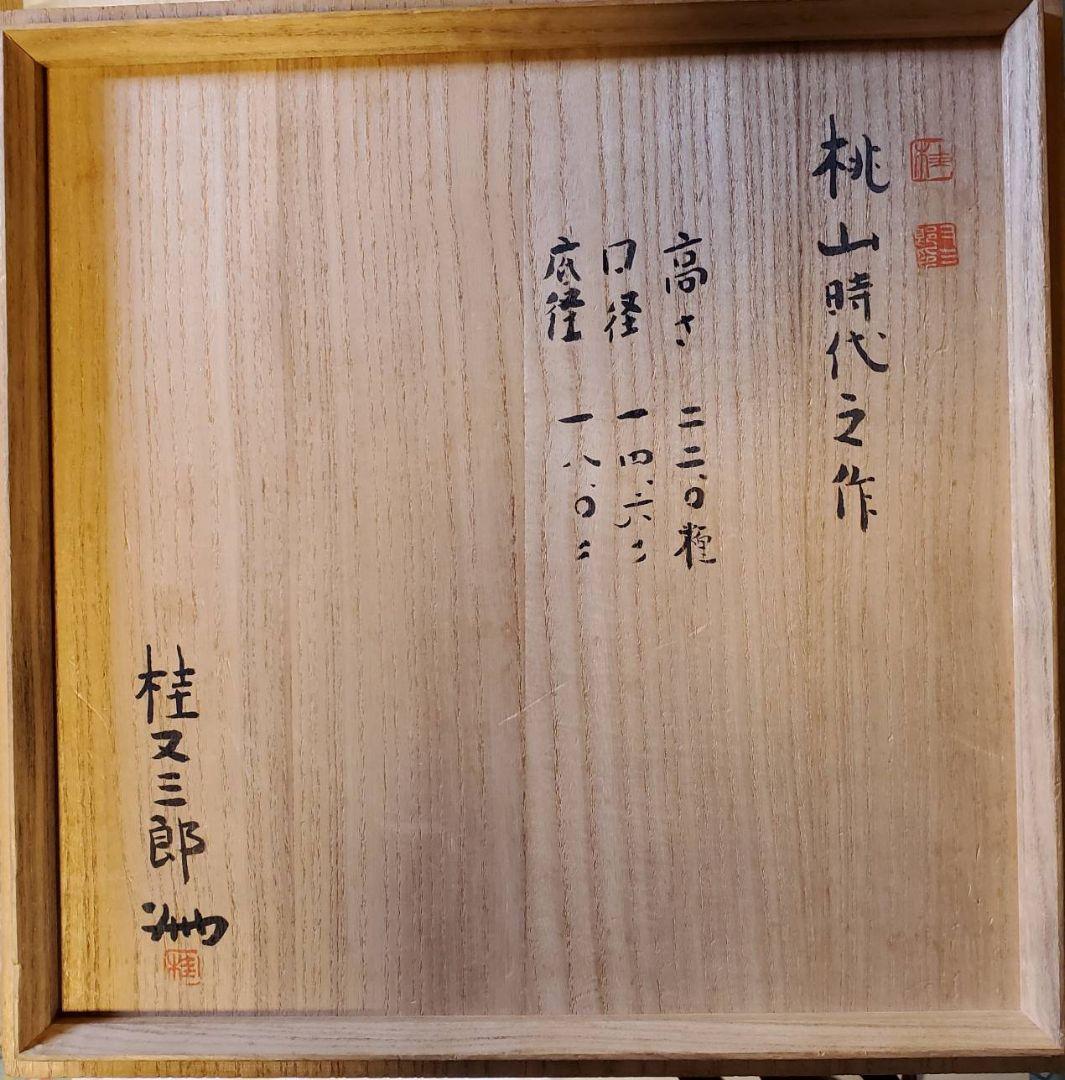 桃山時代之作
高さ 二二、〇糎
口径 一四、六〃
底径 一八、〇〃
桂又三郎
桂
桂